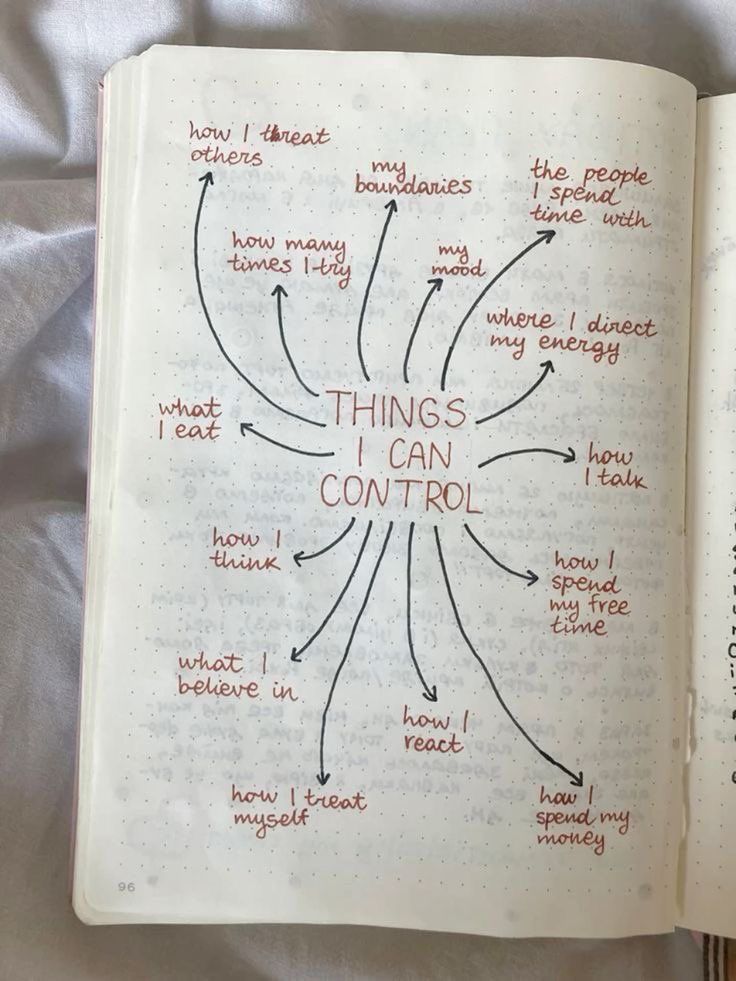 how I threat
others
my
boundaries
the people
I spend
time with
how many
times I try
my
mood
where I direct
my energy
what
I eat
THINGS
I CAN
CONTROL
how
I talk
how I
think
how I
spend
my free
time
what I
believe in
how I
react
how I treat
myself
how I
spend my
money
96